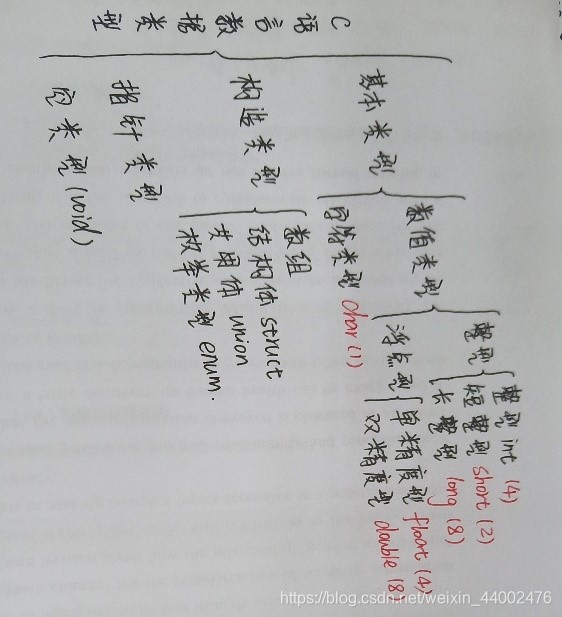 C语言数据类型
基本类型
数值类型
整型
整型 int (4)
短整型 short (2)
长整型 long (8)
浮点型
单精度型 float (4)
双精度型 double (8)
字符类型 char (1)
构造类型
数组
结构体 struct
共用体 union
枚举类型 enum.
指针类型
空类型 (void)
https://blog.csdn.net/weixin_44002476